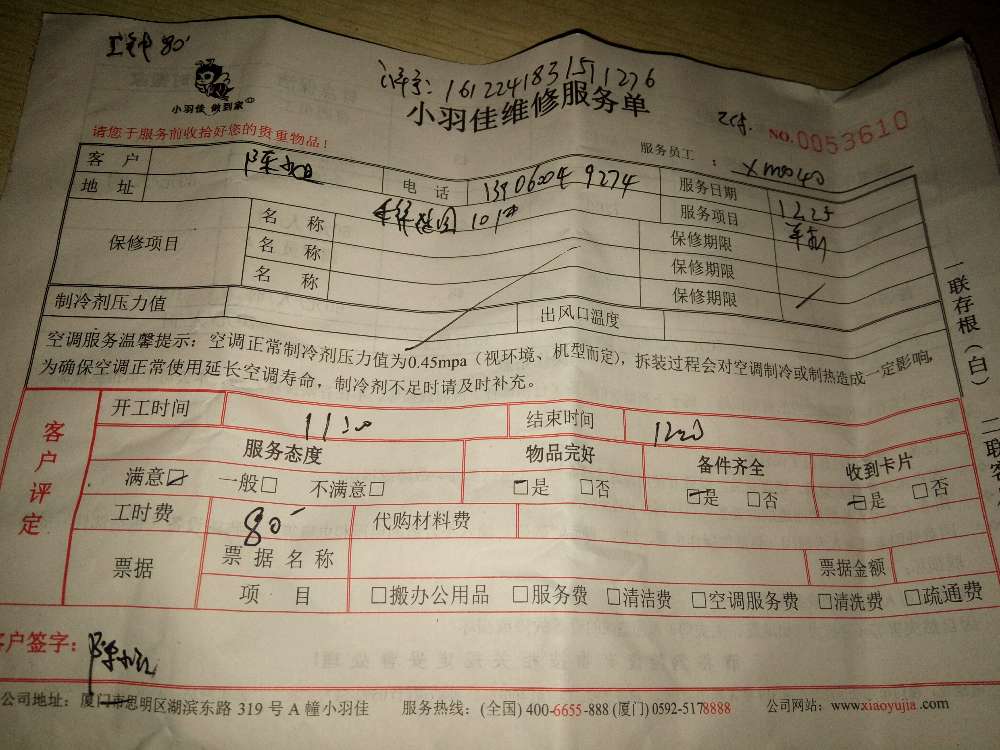 工钟80'
小羽佳 做到家
请您于服务前收拾好您的贵重物品！
1612241831511276
小羽佳维修服务单
NO.0053610
服务员工： Xm0040
客户 电话 服务日期 1225
地址 101# 服务项目
保修项目 名称 保修期限
名称 保修期限
名称 保修期限
制冷剂压力值 出风口温度
空调服务温馨提示：空调正常制冷剂压力值为0.45mpa（视环境、机型而定），拆装过程会对空调制冷或制热造成一定影响，
为确保空调正常使用延长空调寿命，制冷剂不足时请及时补充。
一联存根（白）
二联客
客户评定
开工时间 1120 结束时间 1220
服务态度 物品完好 备件齐全 收到卡片
满意☑ 一般□ 不满意□ ☑是 □否 ☑是 □否 ☑是 □否
工时费 80' 代购材料费
票据 票据名称 票据金额
项目 □搬办公用品 □服务费 □清洁费 □空调服务费 □清洗费 □疏通费
客户签字：
公司地址：厦门市思明区湖滨东路 319 号 A 幢小羽佳 服务热线：(全国) 400-6655-888 (厦门) 0592-5178888 公司网站：www.xiaoyujia.com